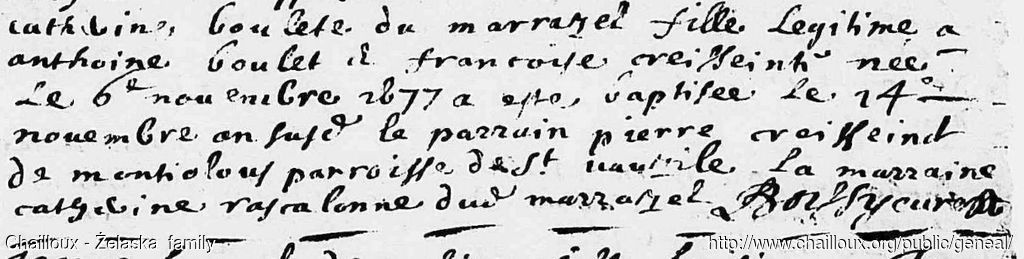 cathrine boulete du marrazel fille legitime a
anthoine boulet & francoise creisseint née
Le 6e novembre 1677 a este baptisee Le 14e
novembre an susd le parrain pierre creisseind
de montiolous parroisse de St La marraine
cathrine rascalonne dud marrazel
Chailloux - Żelaska family
http://www.chailloux.org/public/geneal/